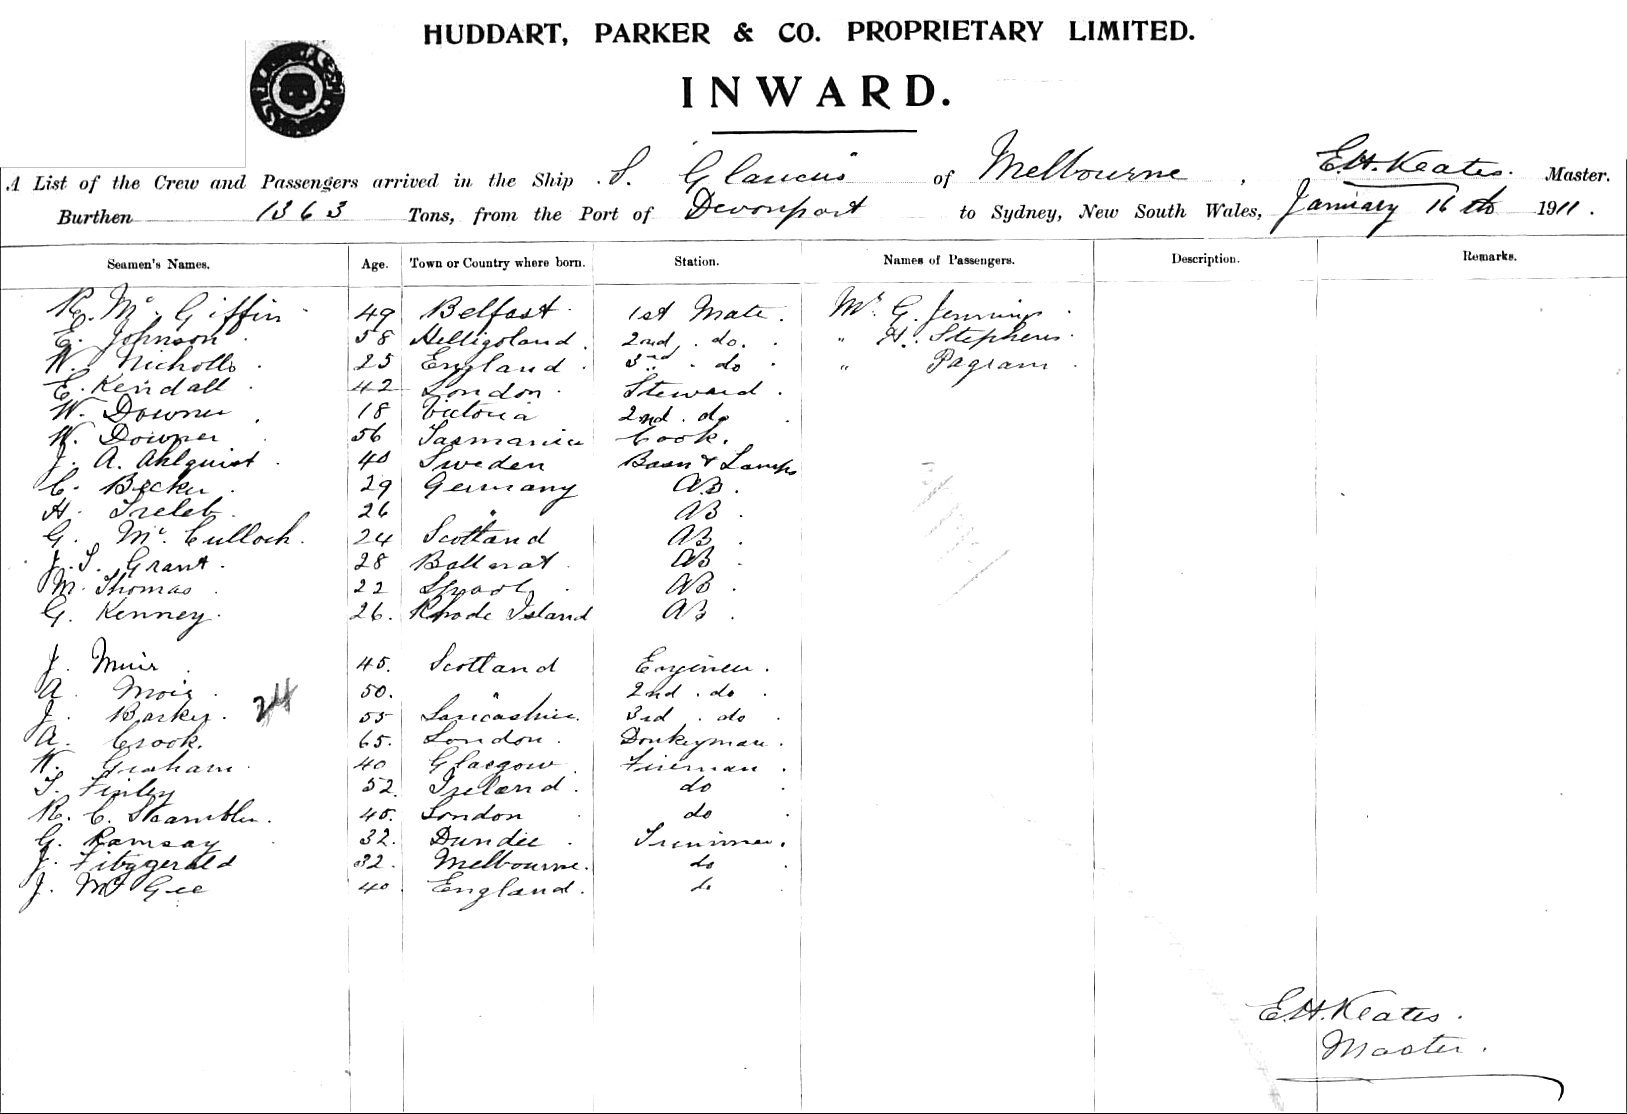 HUDDART, PARKER & CO. PROPRIETARY LIMITED.
INWARD.
A List of the Crew and Passengers arrived in the Ship S. Glaucus of Melbourne, E.H. Keates. Master.
Burthen 1363 Tons, from the Port of Devonport to Sydney, New South Wales, January 16th 1911.
Seamen's Names. Age. Town or Country where born. Station. Names of Passengers. Description. Remarks.
R. Mc. Giffin 49 Belfast 1st Mate. Mr G. Jennings
E. Johnson 58 Helligoland. 2nd. do. " H. Stephens
W. Nicholls 25 England 3rd. do " Pagram
E. Kendall 42 London Steward
W. Downer 18 Victoria 2nd. do
W. Downer 56 Tasmania Cook.
J. A. Ahlquist 40 Sweden Bosn & Lamps
C. Becker 29 Germany AB.
H. 26 " AB
G. Mc. Culloch. 24 Scotland AB
J. S. Grant 28 Ballarat AB
M. Thomas 22 AB
G. Kenney. 26. Rhode Island AB
J. Muir 45. Scotland Engineer.
A. Moir 50. " 2nd. do
J. Barker 24 55 Lancashire. 3rd. do
A. Crook. 65. London. Donkeyman.
W. Graham 40 Glasgow Fireman
T. Finley 52 Ireland. do
R. C. 40. London do
G. Ramsay 32. Dundee Trimmer.
J. Fitzgerald 32. Melbourne. do
J. Mc Gee 40 England. do
E.H. Keates.
Master.